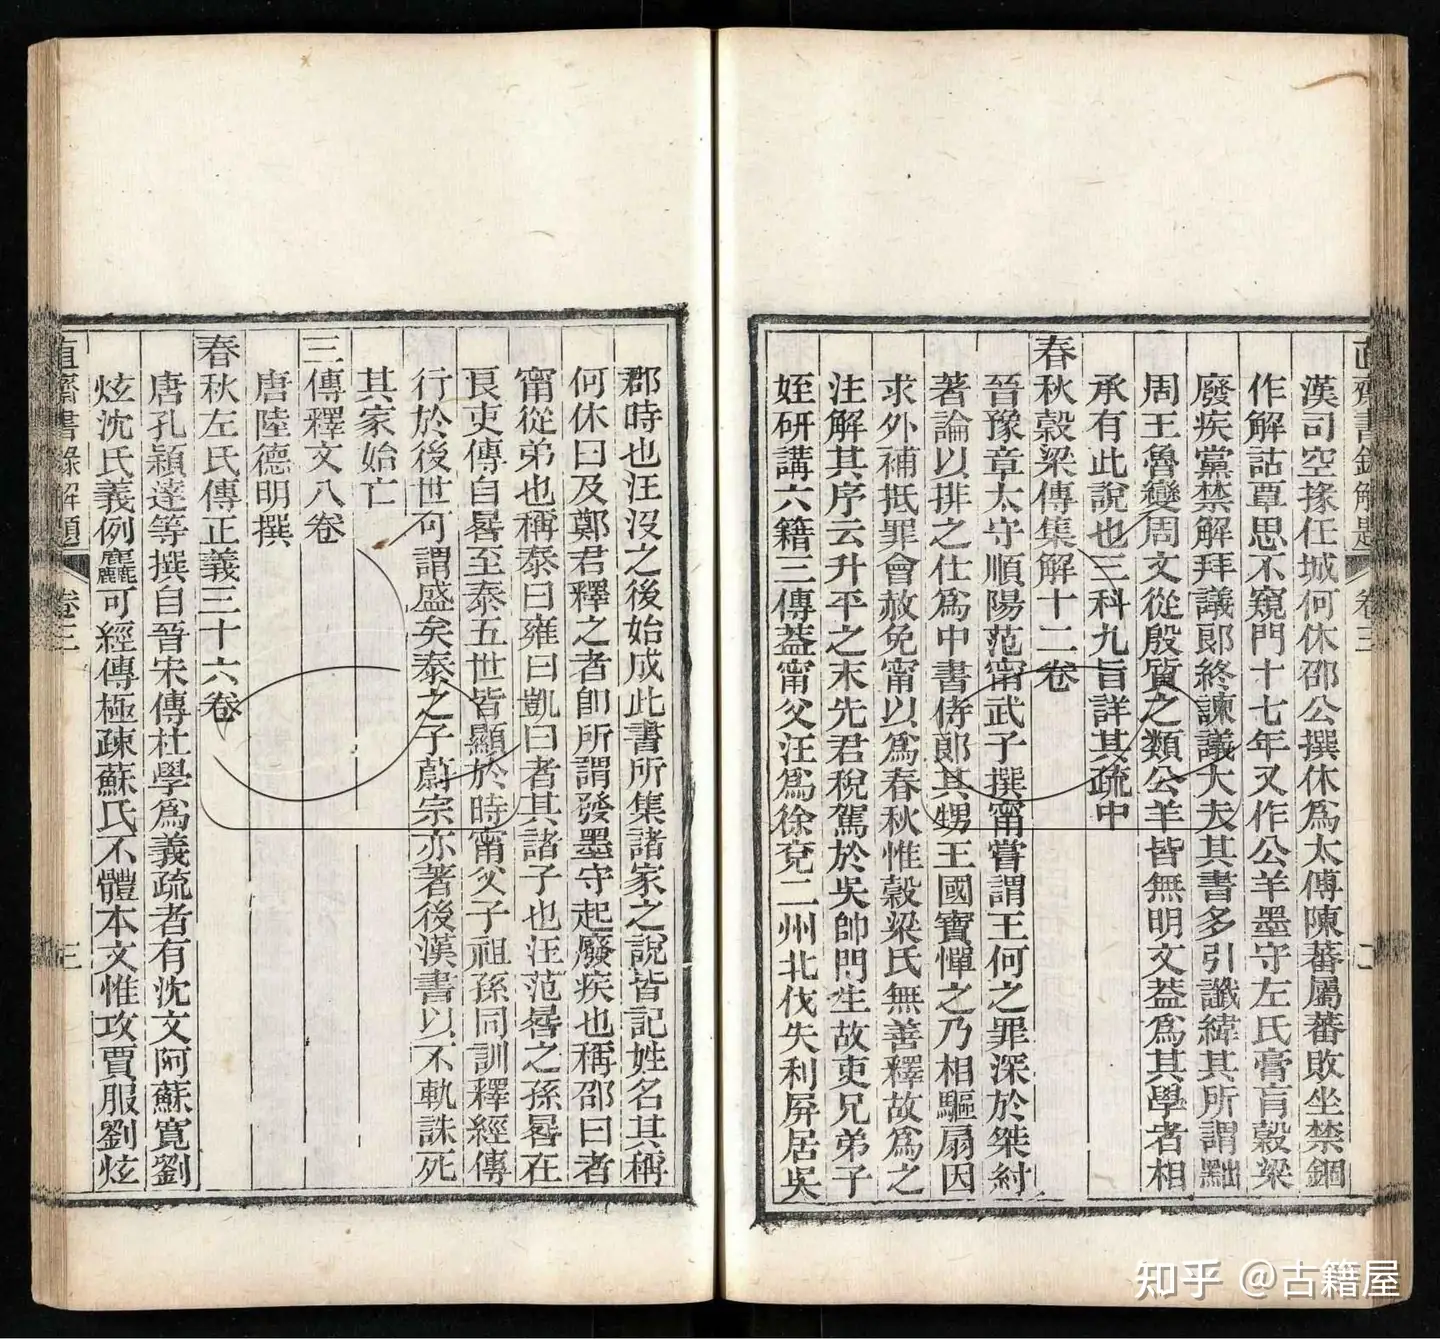 漢司空掾任城何休邵公撰休爲太傅陳蕃屬蕃敗坐禁錮
作解詁覃思不窺門十七年又作公羊墨守左氏膏肓穀梁
廢疾黨禁解拜議郎終諫議大夫其書多引讖緯其所謂黜
周王魯變周文從殷質之類公羊皆無明文葢爲其學者相
承有此說也三科九旨詳其疏中
春秋穀梁傳集解十二卷
晉豫章太守順陽范甯武子撰甯嘗謂王何之罪深於桀紂
著論以排之仕爲中書侍郎其甥王國寶憚之乃相驅扇因
求外補抵罪會赦免甯以爲春秋惟穀梁氏無善釋故爲之
注解其序云升平之末先君稅駕於吳帥門生故吏兄弟子
姪研講六籍三傳葢甯父汪爲徐兗二州北伐失利屏居吳
直齋書錄解題 卷三
郡時也汪沒之後始成此書所集諸家之說皆記姓名其稱
何休曰及鄭君釋之者卽所謂發墨守起廢疾也稱邵曰者
甯從弟也稱泰曰雍曰凱曰者其諸子也汪范晷之孫晷在
良吏傳自晷至泰五世皆顯於時甯父子祖孫同訓釋經傳
行於後世可謂盛矣泰之子蔚宗亦著後漢書以不軌誅死
其家始亡
三傳釋文八卷
唐陸德明撰
春秋左氏傳正義三十六卷
唐孔穎達等撰自晉宋傳杜學爲義疏者有沈文阿蘇寬劉
炫沈氏義例麤可經傳極疎蘇氏不體本文惟攻賈服劉炫
直齋書錄解題 卷三 三
知乎 @古籍屋